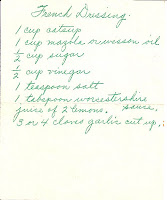 French Dressing.
1 cup catsup
1 cup mazola or wesson oil
1/2 cup sugar
1/2 cup vinegar
1 teaspoon salt
1 tabspoon worcestershire
sauce.
juice of 2 lemons.
3 or 4 cloves garlic cut up.